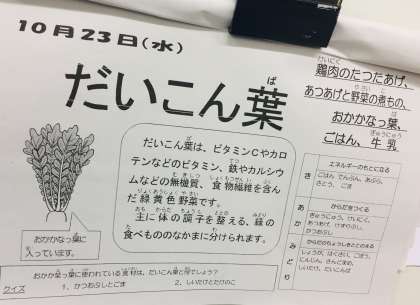 10月23日(水)
だいこん葉
鶏肉のたつたあげ、
あつあげと野菜の煮もの、
おかかなっ葉、
ごはん、牛乳
だいこん葉は、ビタミンCやカロ
テンなどのビタミン、鉄やカルシウ
ムなどの無機質、食物繊維を含ん
だ緑黄色野菜です。
主に体の調子を整える、緑の
食べもののなかまに分けられます。
おかかなっ葉に
入っています。
き
エネルギーのもとになる
ごはん でんぷん、あぶら、
さとう、ごま
あか
からだをつくる
ぎゅうにゅう、けいにく、
あつあげ、けずりぶし、
かつおぶし
みどり
からだのちょうしをととのえる
しょうが、はくさい、ごぼう、
にんじん、さやいんげん、
しいたけ、だいこんば
クイズ
おかか菜っ葉に使われている食材は、だいこん葉と何でしょう?
1、かつおぶしとごま
2、しいたけとたけのこ